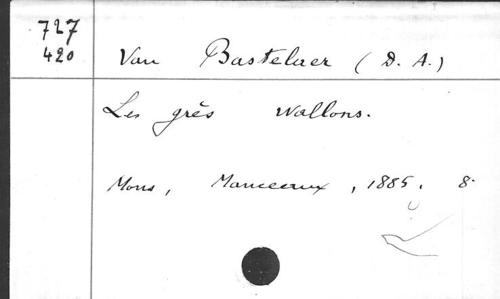 727
420
Van Bastelaer (D. A.)
Les grès wallons.
Mons, Manceaux, 1885, 8°